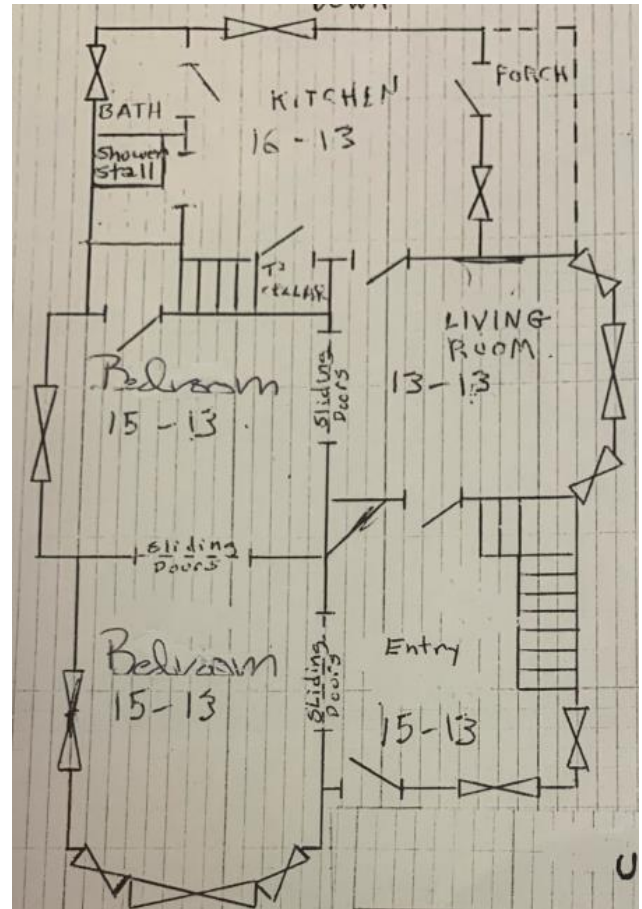 BATH
KITCHEN
16-13
PORCH
Shower
stall
TO
CELLAR
LIVING
ROOM
13-13
Bedroom
15-13
Sliding
Doors
Sliding
Doors
Bedroom
15-13
Sliding
Doors
Entry
15-13
U